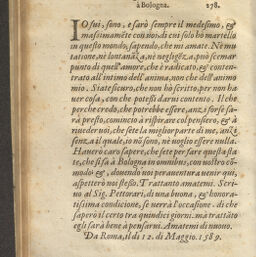 à Bologna. 278.
IO fui, sono, e sarò sempre il medesimo, &
massimamēte con voi, di cui solo hò martello
in questo mondo, sapendo, che mi amate. Nè mu
tatione, nè lontanāza, nè negligēza, può scemar
punto di quell'amore, che è radicato, & conten-
trato all'intimo dell'anima, non che dell'animo
mio. State sicuro, che non hò scritto, per non ha
uer cosa, con che potessi darui contento. Il che
perche credo, che potrebbe essere, anzi forse sa-
rà presto, comincio à respirare col pensiero, & à
riueder uoi, che sete la miglior parte di me, anzi
senz'a il quale io nō sono, nè uoglio essere nulla.
Hauerò caro sapere, che sete per far questa sta
te, che si fà à Bologna in omnibus, con uostro cō-
modo &, douendo uoi per auentura uenir quì,
aspetterò uoi stesso. Trattanto amatemi. Scri-
uo al Sig. Pettorari, di una buona, & honora-
tissima conditione, se uerrà l'occasione. di che
saperò il certo tra quindici giorni. ma trattāto
egli sarà bene à pensarui. Amatemi di nuouo.
Da Roma, il dì 12. di Maggio. 1589.